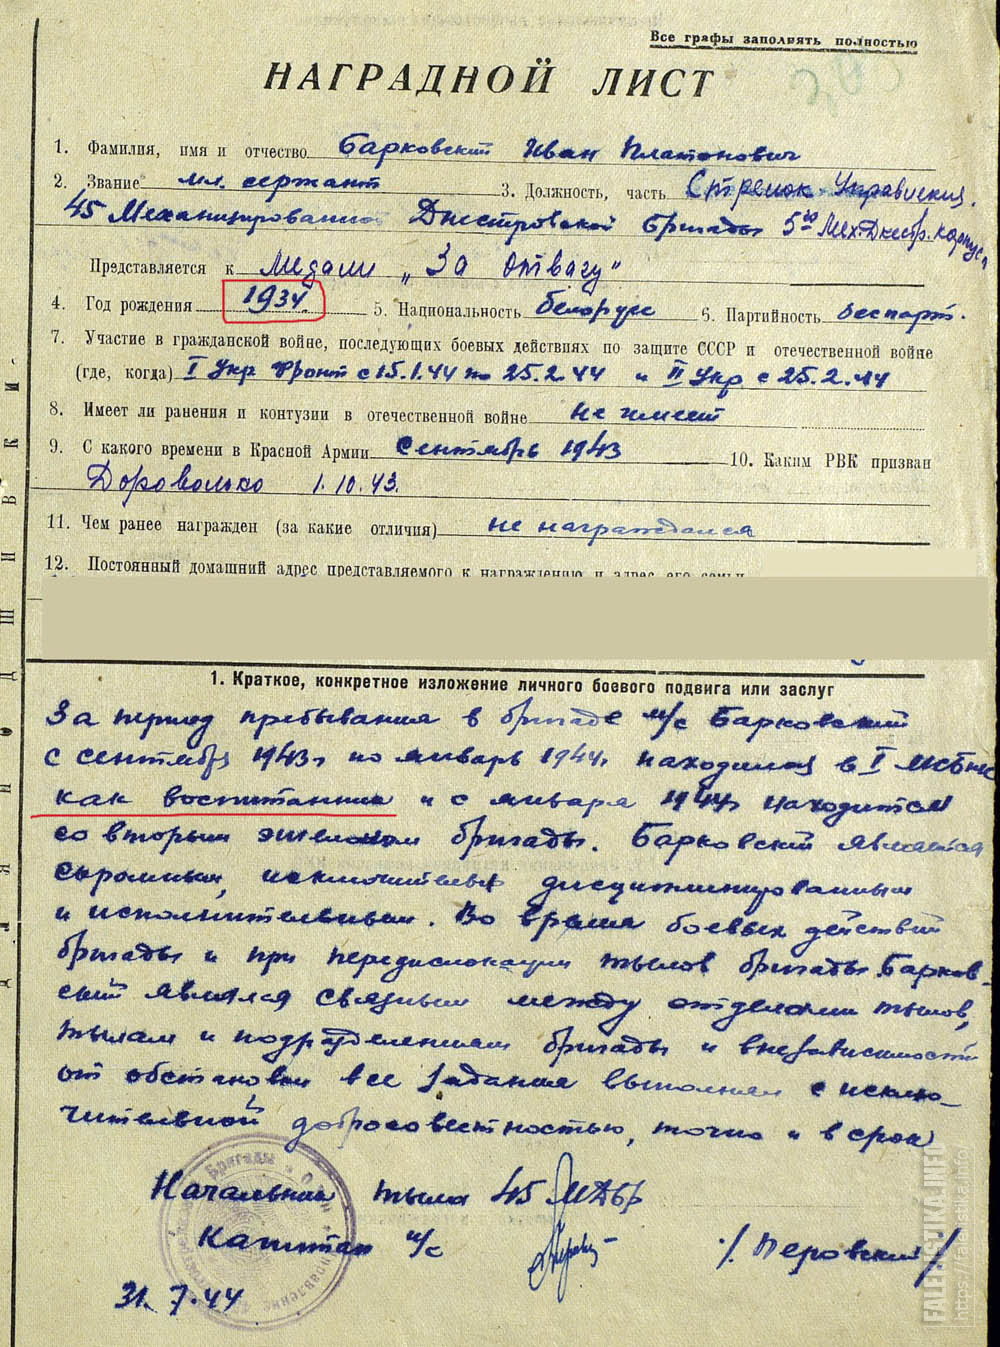 Все графы заполнять полностью
НАГРАДНОЙ ЛИСТ
1. Фамилия, имя и отчество Барковский Иван Платонович
2. Звание мл. сержант 3. Должность, часть Стрелок Управления
45 Механизированной Днестровской Бригады 5го Мех. Днестр. корпуса
Представляется к медали „За отвагу"
4. Год рождения 1934. 5. Национальность белорус 6. Партийность беспарт.
7. Участие в гражданской войне, последующих боевых действиях по защите СССР и отечественной войне
(где, когда) I Укр Фронт с 15.1.44 по 25.2.44 и II Укр с 25.2.44
8. Имеет ли ранения и контузии в отечественной войне не имеет
9. С какого времени в Красной Армии Сентябрь 1943 10. Каким РВК призван
Добровольно 1.10.43.
11. Чем ранее награжден (за какие отличия) не награждался
12. Постоянный домашний адрес представляемого к награждению и адрес его семьи
1. Краткое, конкретное изложение личного боевого подвига или заслуг
За период пребывания в бригаде м/с Барковский
с сентября 1943г по январь 1944г. находился в I
как воспитанник и с января 1944г находится
со вторым эшелоном бригады. Барковский является
скромным, исключительно дисциплинированным
и исполнительным. Во время боевых действий
бригады и при передислокации тылов бригады Барков-
ский являлся связным между отделами тылов,
тылами и подразделениями бригады и внезависимости
от обстановки все задания выполнял с исклю-
чительной добросовестностью, точно и в срок
Начальник тыла 45 МДБР
Капитан и/с /Перовский/
31.7.44
Бригады
Управление
FALERISTIKA.INFO
https://faleristika.info